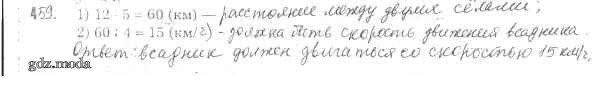 459. 1) 12 · 5 = 60 (км) — расстояние между двумя сёлами;
2) 60 : 4 = 15 (км/г) - должна быть скорость движения всадника.
Ответ: всадник должен двигаться со скоростью 15 км/г,
gdz.moda